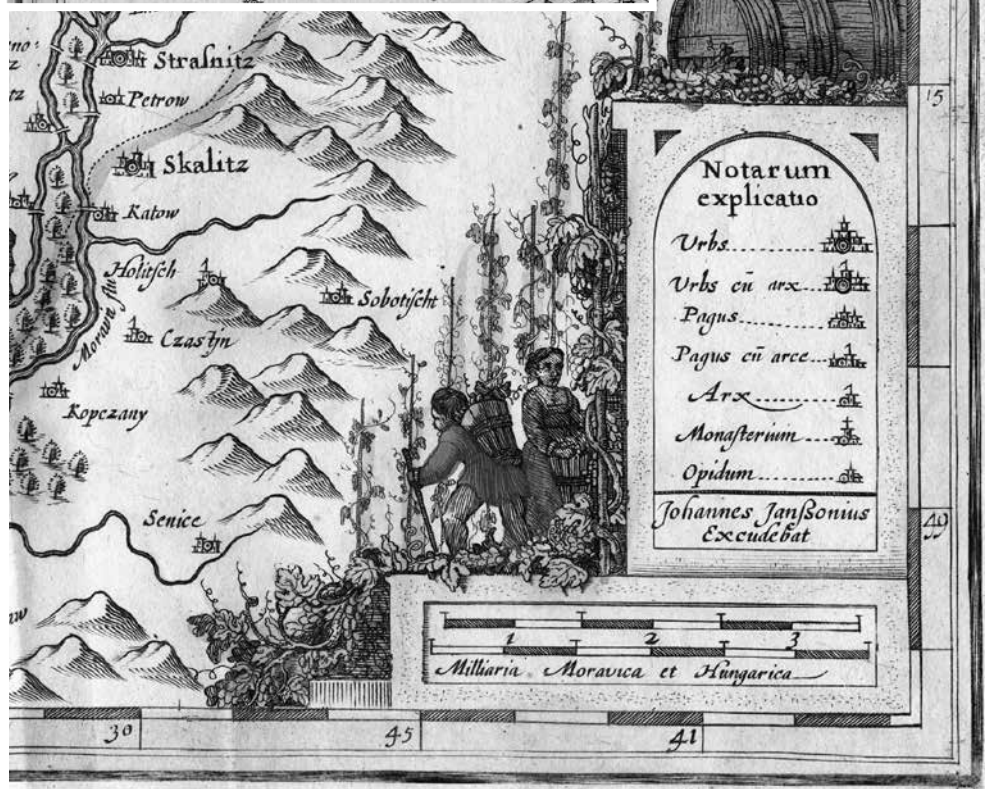 Straſnitz
Petrow
Skalitz
Katow
Holitſch
Sobotiſcht
Morava flu
Czastjn
Kopczany
Senice
15
Notarum
explicatio
Urbs
Urbs cū arx
Pagus
Pagus cū arce
Arx
Monaſterium
Opidum
Johannes Janßonius
Excudebat
49
1 2 3
Milliaria Moravica et Hungarica
30 45 41